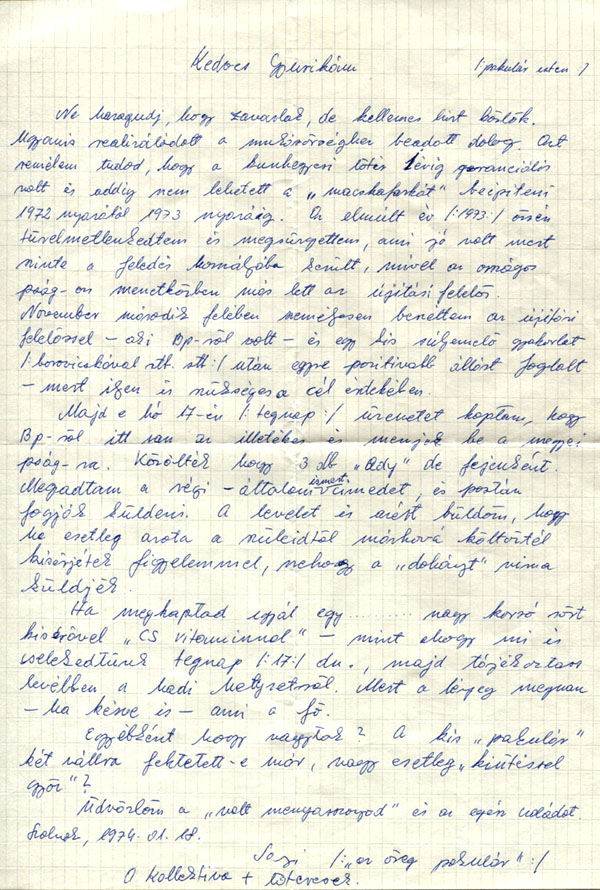 Kedves Gyurikám /:pakulár uten:/
Ne haragudj, hogy zavarlak, de kellemes hírt közlök.
Ugyanis realizálódott a műbősörségben beadott dolog. Azt
remélem tudod, hogy a kunhegyesi tötés 1 évig garanciális
volt és addig nem lehetett a „macskafarkát" beépíteni
1972 nyarától 1973 nyaráig. Az elmúlt év /:1973:/ őszén
türelmetlenkedtem és megsürgettem, ami jó volt mert
mintha a feledés homályába került, mivel az országos
pság-on menetközben más lett az újítási felelős.
November második felében személyesen benéztem az újítási
felelőssel – aki Bp-ről volt – és egy kis súlyemelő gyakorlat
/:borovicskával stb. stb:/ után egyre pozitívabb állást foglalt
– mert ilyen is szükséges a cél érdekében.
Majd e hó 17-én /:tegnap:/ üzenetet kaptam, hogy
Bp-ről itt van az illetékes és menjek be a megyei
pság-ra. Közölték hogy 3 db „Ady" de fejenként.
Megadtam a régi – általam ismert címedet, és postán
fogják küldeni. A levelet is azért küldöm, hogy
ha esetleg azóta a szüleidtől máshová költöztél
kísérjétek figyelemmel, nehogy a „dohányt" vissza
küldjék.
Ha megkaptad igyál egy .......... nagy korsó sört
kísérővel „CS vitaminnal" – mint ahogy mi is
cselekedtünk tegnap /:17:/ du., majd tájékoztass
levélben a hadi helyzetről. Mert a lényeg megvan
– ha késve is – ami a fő.
Egyébként hogy vagytok? A kis „pakulár"
két vállra fektetett-e már, vagy esetleg „kiütéssel
győz"?
Üdvözlöm a „volt menyasszonyod" és az egész családot.
Szolnok, 1974. 01. 18.
/:„az öreg pakulár":/
O Kollektíva +